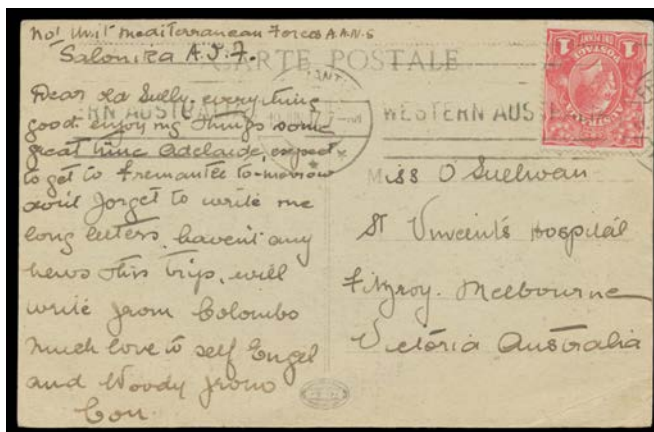 No 1 Unit Mediterranean Forces A.A.N.S
Salonika A.I.F.
CARTE POSTALE
Dear old Sully, everything
good. enjoying things some
great time Adelaide, expect
to get to Fremantle to-morrow
don't forget to write me
long letters, haven't any
news this trip, will
write from Colombo
much love to self Engel
and Woody from
Con
WESTERN AUST
Miss O'Sullivan
St Vincent's Hospital
Fitzroy. Melbourne
Victoria Australia